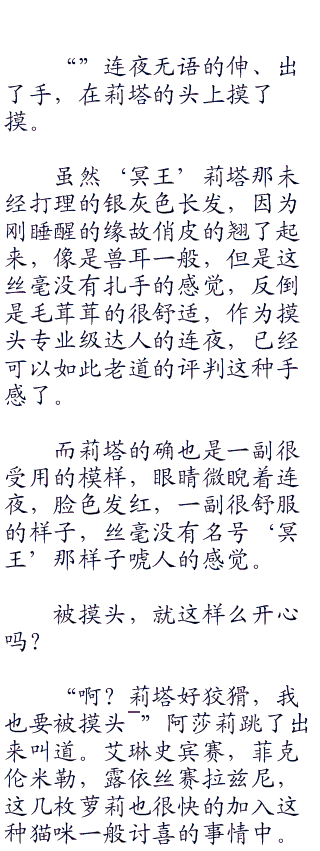 “”连夜无语的伸、出
了手，在莉塔的头上摸了
摸。
虽然‘冥王’莉塔那未
经打理的银灰色长发，因为
刚睡醒的缘故俏皮的翘了起
来，像是兽耳一般，但是这
丝毫没有扎手的感觉，反倒
是毛茸茸的很舒适，作为摸
头专业级达人的连夜，已经
可以如此老道的评判这种手
感了。
而莉塔的确也是一副很
受用的模样，眼睛微睨着连
夜，脸色发红，一副很舒服
的样子，丝毫没有名号‘冥
王’那样子唬人的感觉。
被摸头，就这样么开心
吗？
“啊？莉塔好狡猾，我
也要被摸头¯”阿莎莉跳了出
来叫道。艾琳史宾赛，菲克
伦米勒，露依丝赛拉兹尼，
这几枚萝莉也很快的加入这
种猫咪一般讨喜的事情中。